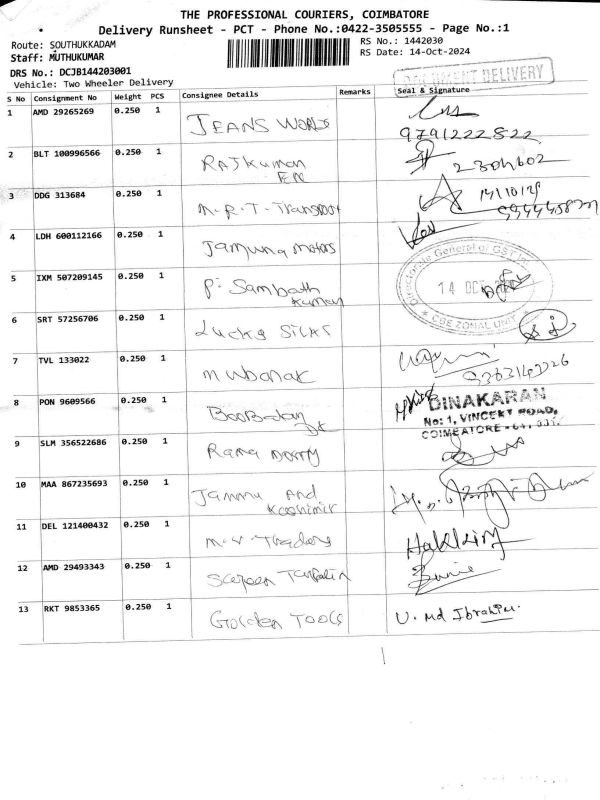 THE PROFESSIONAL COURIERS, COIMBATORE
Delivery Runsheet - PCT - Phone No.:0422-3505555 - Page No.:1
Route: SOUTHUKKADAM
RS No.: 1442030
Staff: MUTHUKUMAR
RS Date: 14-Oct-2024
DRS No.: DCJB144203001
Vehicle: Two Wheeler Delivery
DOCUMENT DELIVERY
S No Consignment No Weight PCS Consignee Details Remarks Seal & Signature
1 AMD 29265269 0.250 1 JEANS WORLD
9791222822
2 BLT 100996566 0.250 1 RAJKUMAR
2304602
3 DDG 313684 0.250 1 M.R.T. Transport 14/10/24
4 LDH 600112166 0.250 1 Jamuna motors
5 IXM 507209145 0.250 1 P. Sambath
Kumar
Directorate General of GST
14 OCT
CBE ZONAL UNIT
6 SRT 57256706 0.250 1 Lucky Silks
7 TVL 133022 0.250 1 Mubarak
8 PON 9609566 0.250 1
DINAKARAN
No: 1, VINCENT ROAD,
COIMBATORE
9 SLM 356522686 0.250 1 Rama
10 MAA 867235693 0.250 1 Jammu And
Kashmir
11 DEL 121400432 0.250 1 M.V. Traders
12 AMD 29493343 0.250 1
13 RKT 9853365 0.250 1 Golden Tools U. Md Ibrahim.